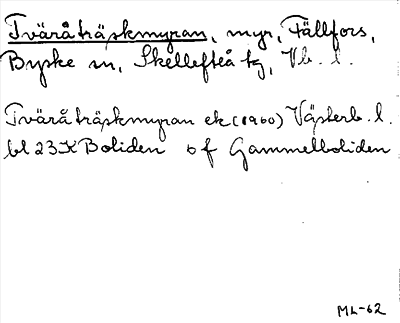 Tväråträskmyran, myr, Fällfors,
Byske sn, Skellefteå tg, Vb. l.
Tväråträskmyran ek (1960) Västerb. l.
bl 23K Boliden of Gammelboliden
ML-62